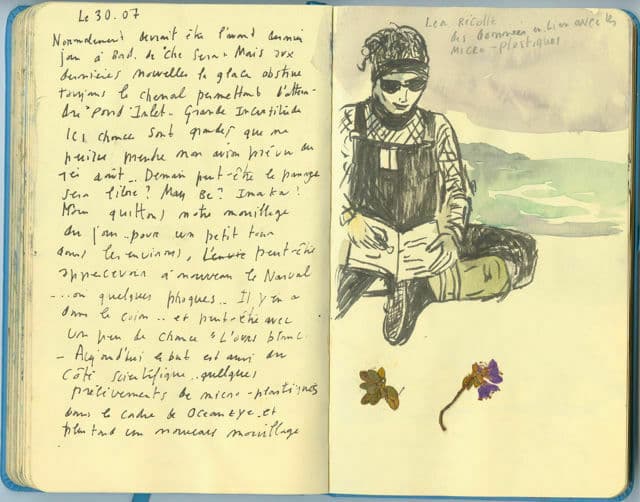 Le 30.07
Normalement devrait être l'avant dernier
jour à Bord de "Che Sera" Mais aux
dernières nouvelles la glace obstrue
toujours le chenal permettant d'attein-
dre "Pond" Inlet.. Grande Incertitude
Les chances sont grandes que ne
puisse prendre mon avion prévu du
1er août... Demain peut-être le passage
sera libre? May Be? Inaka!
Nous quittons notre mouillage
du jour.. pour un petit tour
dans les environs, L'envie peut-être
appercevoir à nouveau le Narval
....ou quelques phoques.. Il y en a
dans le coin.. et peut-être avec
un peu de chance "L'ours blanc
- Aujourd'hui le but est aussi du
côté scientifique.. quelques
prélèvements de micro-plastiques
dans le cadre de OceanEye. et
plus tard un nouveau mouillage
Lea Récolte
des données en lien avec les
micro-plastiques